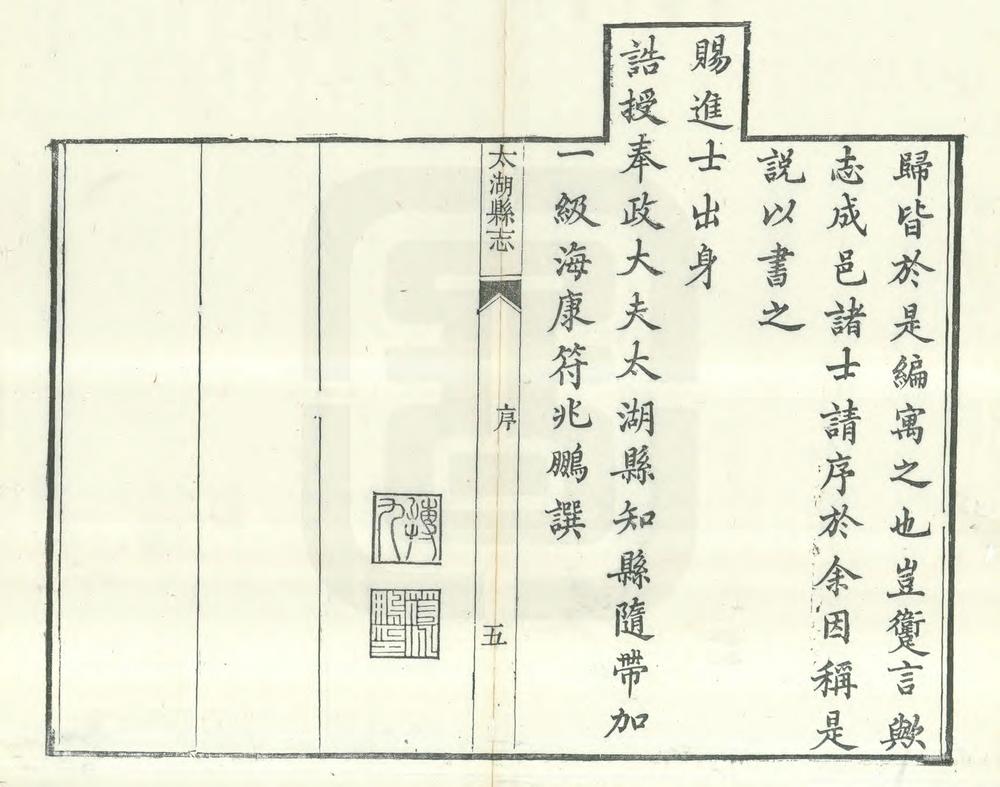 歸皆於是編寓之也豈躗言歟
志成邑諸士請序於余因稱是
説以書之
賜進士出身
誥授奉政大夫太湖縣知縣隨帶加
一級海康符兆鵬譔
太湖縣志
序
五
摶九